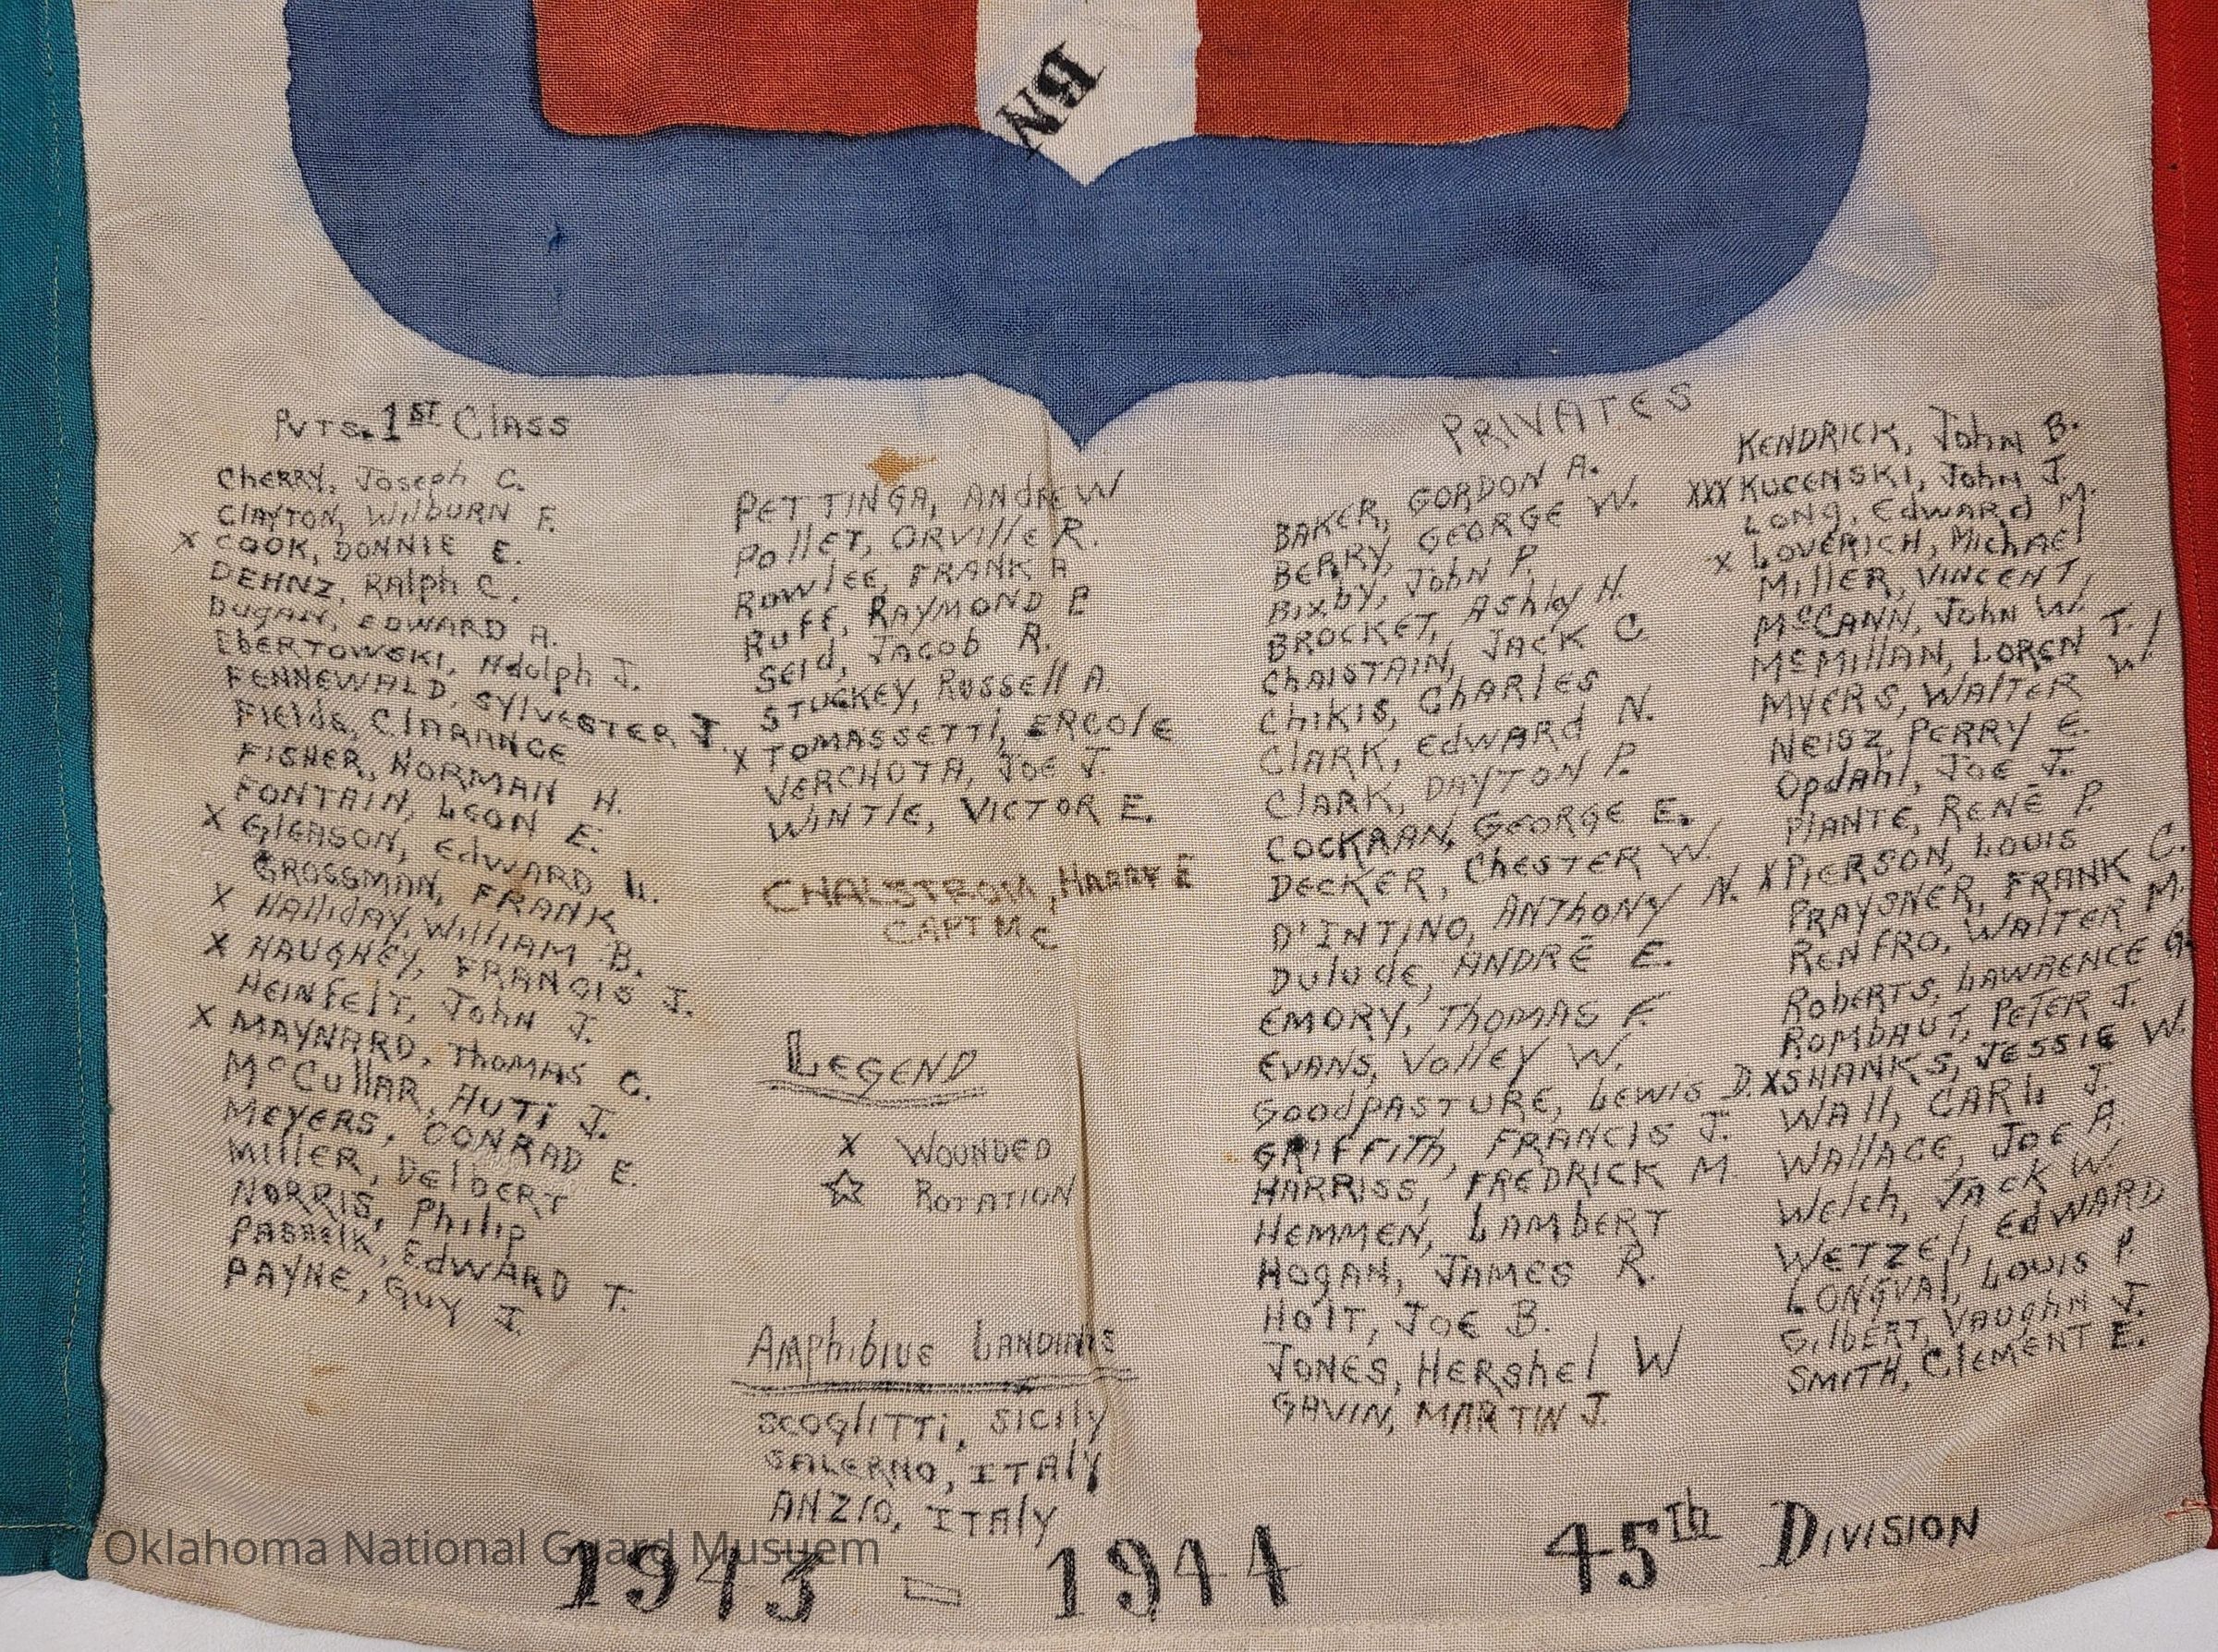 BN
Pvts. 1st Class
Cherry, Joseph C.
Clayton, Wilburn F.
x Cook, Donnie E.
Dehnz, Ralph C.
Dugan, Edward A.
Ebertowski, Adolph J.
Fennewald, Sylvester J.
Fields, Clarance
Fisher, Norman H.
Fontain, Leon E.
x Gleason, Edward L.
Grossman, Frank
x Halliday, William B.
x Haughey, Francis J.
Heinfelt, John J.
x Maynard, Thomas C.
McCullar, Huti J.
Meyers, Conrad E.
Miller, Delbert
Norris, Philip
Edward T.
Payne, Guy J.
Pettinga, Andrew
Pollet, Orville R.
Rowlee, Frank A
Ruff, Raymond E
Seid, Jacob R.
Stuckey, Russell A.
x Tomassetti, Ercole
Verchota, Joe J.
Wintle, Victor E.
Chalstrom, Harry E
Capt MC
Legend
x Wounded
☆ Rotation
Amphibius Landings
Scoglitti, Sicily
Salerno, Italy
Anzio, Italy
Privates
Baker, Gordon A.
Berry, George W.
Bixby, John P.
Brocket, Ashley H.
Chaistain, Jack C
Chikis, Charles
Clark, Edward N.
Clark, Dayton P.
Cockraan, George E.
Decker, Chester W.
D'Intino, Anthony N.
Dulude, André E.
Emory, Thomas F.
Evans, Volley W.
Goodpasture, Lewis D.
Griffith, Francis J.
Harriss, Fredrick M
Hemmen, Lambert
Hogan, James R.
Holt, Joe B.
Jones, Hershel W
Gavin, Martin J.
Kendrick, John B.
xxx Kucenski, John J.
Long, Edward M.
x Loverich, Michael
Miller, Vincent
McCann, John W.
McMillan, Loren T.
Myers, Walter W.
Neisz, Perry E.
Opdahl, Joe J.
Plante, René P.
x Pierson, Louis
Praysner, Frank C.
Renfro, Walter M.
Roberts, Lawrence G.
Rombaut, Peter J.
x Shanks, Jessie W.
Wall, Carl J.
Wallace, Joe A.
Welch, Jack W.
Wetzel, Edward
Longval, Louis P.
Gilbert, Vaughn J.
Smith, Clement E.
1943 - 1944
45th Division
Oklahoma National Guard Musuem